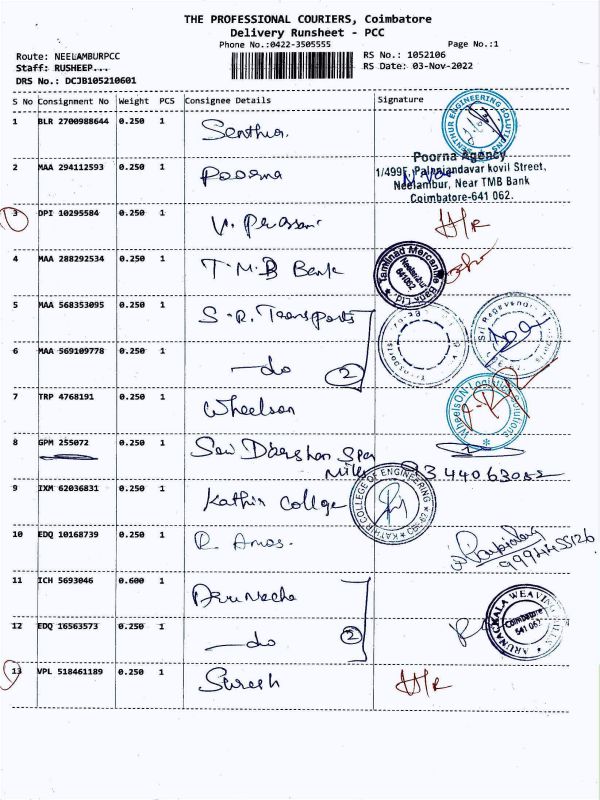 THE PROFESSIONAL COURIERS, Coimbatore
Delivery Runsheet - PCC
Phone No.:0422-3505555 Page No.:1
Route: NEELAMBURPCC RS No.: 1052106
Staff: RUSHEEP... RS Date: 03-Nov-2022
DRS No.: DCJB105210601
S No Consignment No Weight PCS Consignee Details Signature
1 BLR 2700988644 0.250 1 Senthur.
SENTHUR ENGINEERING SOLUTIONS
2 MAA 294112593 0.250 1 Poorna
Poorna Agency
1/499F, Palaniandavar kovil Street,
Neelambur, Near TMB Bank
Coimbatore-641 062.
3 DPI 10295584 0.250 1 V. Prasan H/R
4 MAA 288292534 0.250 1 T.M.B Bank
Tamilnad Mercantile Bank Ltd
Neelambur
641062
5 MAA 568353095 0.250 1 S.R. Transports
6 MAA 569109778 0.250 1 do 2
7 TRP 4768191 0.250 1 Wheelson
WheelsON Logistics Solutions
8 GPM 255072 0.250 1 Sai Darshan Spg
Mills 9344063052
9 IXM 62036831 0.250 1 Kathir College
KATHIR COLLEGE OF ENGINEERING
10 EDQ 10168739 0.250 1 R. Amos.
11 ICH 5693046 0.600 1 Arunacha
12 EDQ 16563573 0.250 1 do 2
ARUNACHALA WEAVING MILLS
Coimbatore
541 062
13 VPL 518461189 0.250 1 Suresh H/R